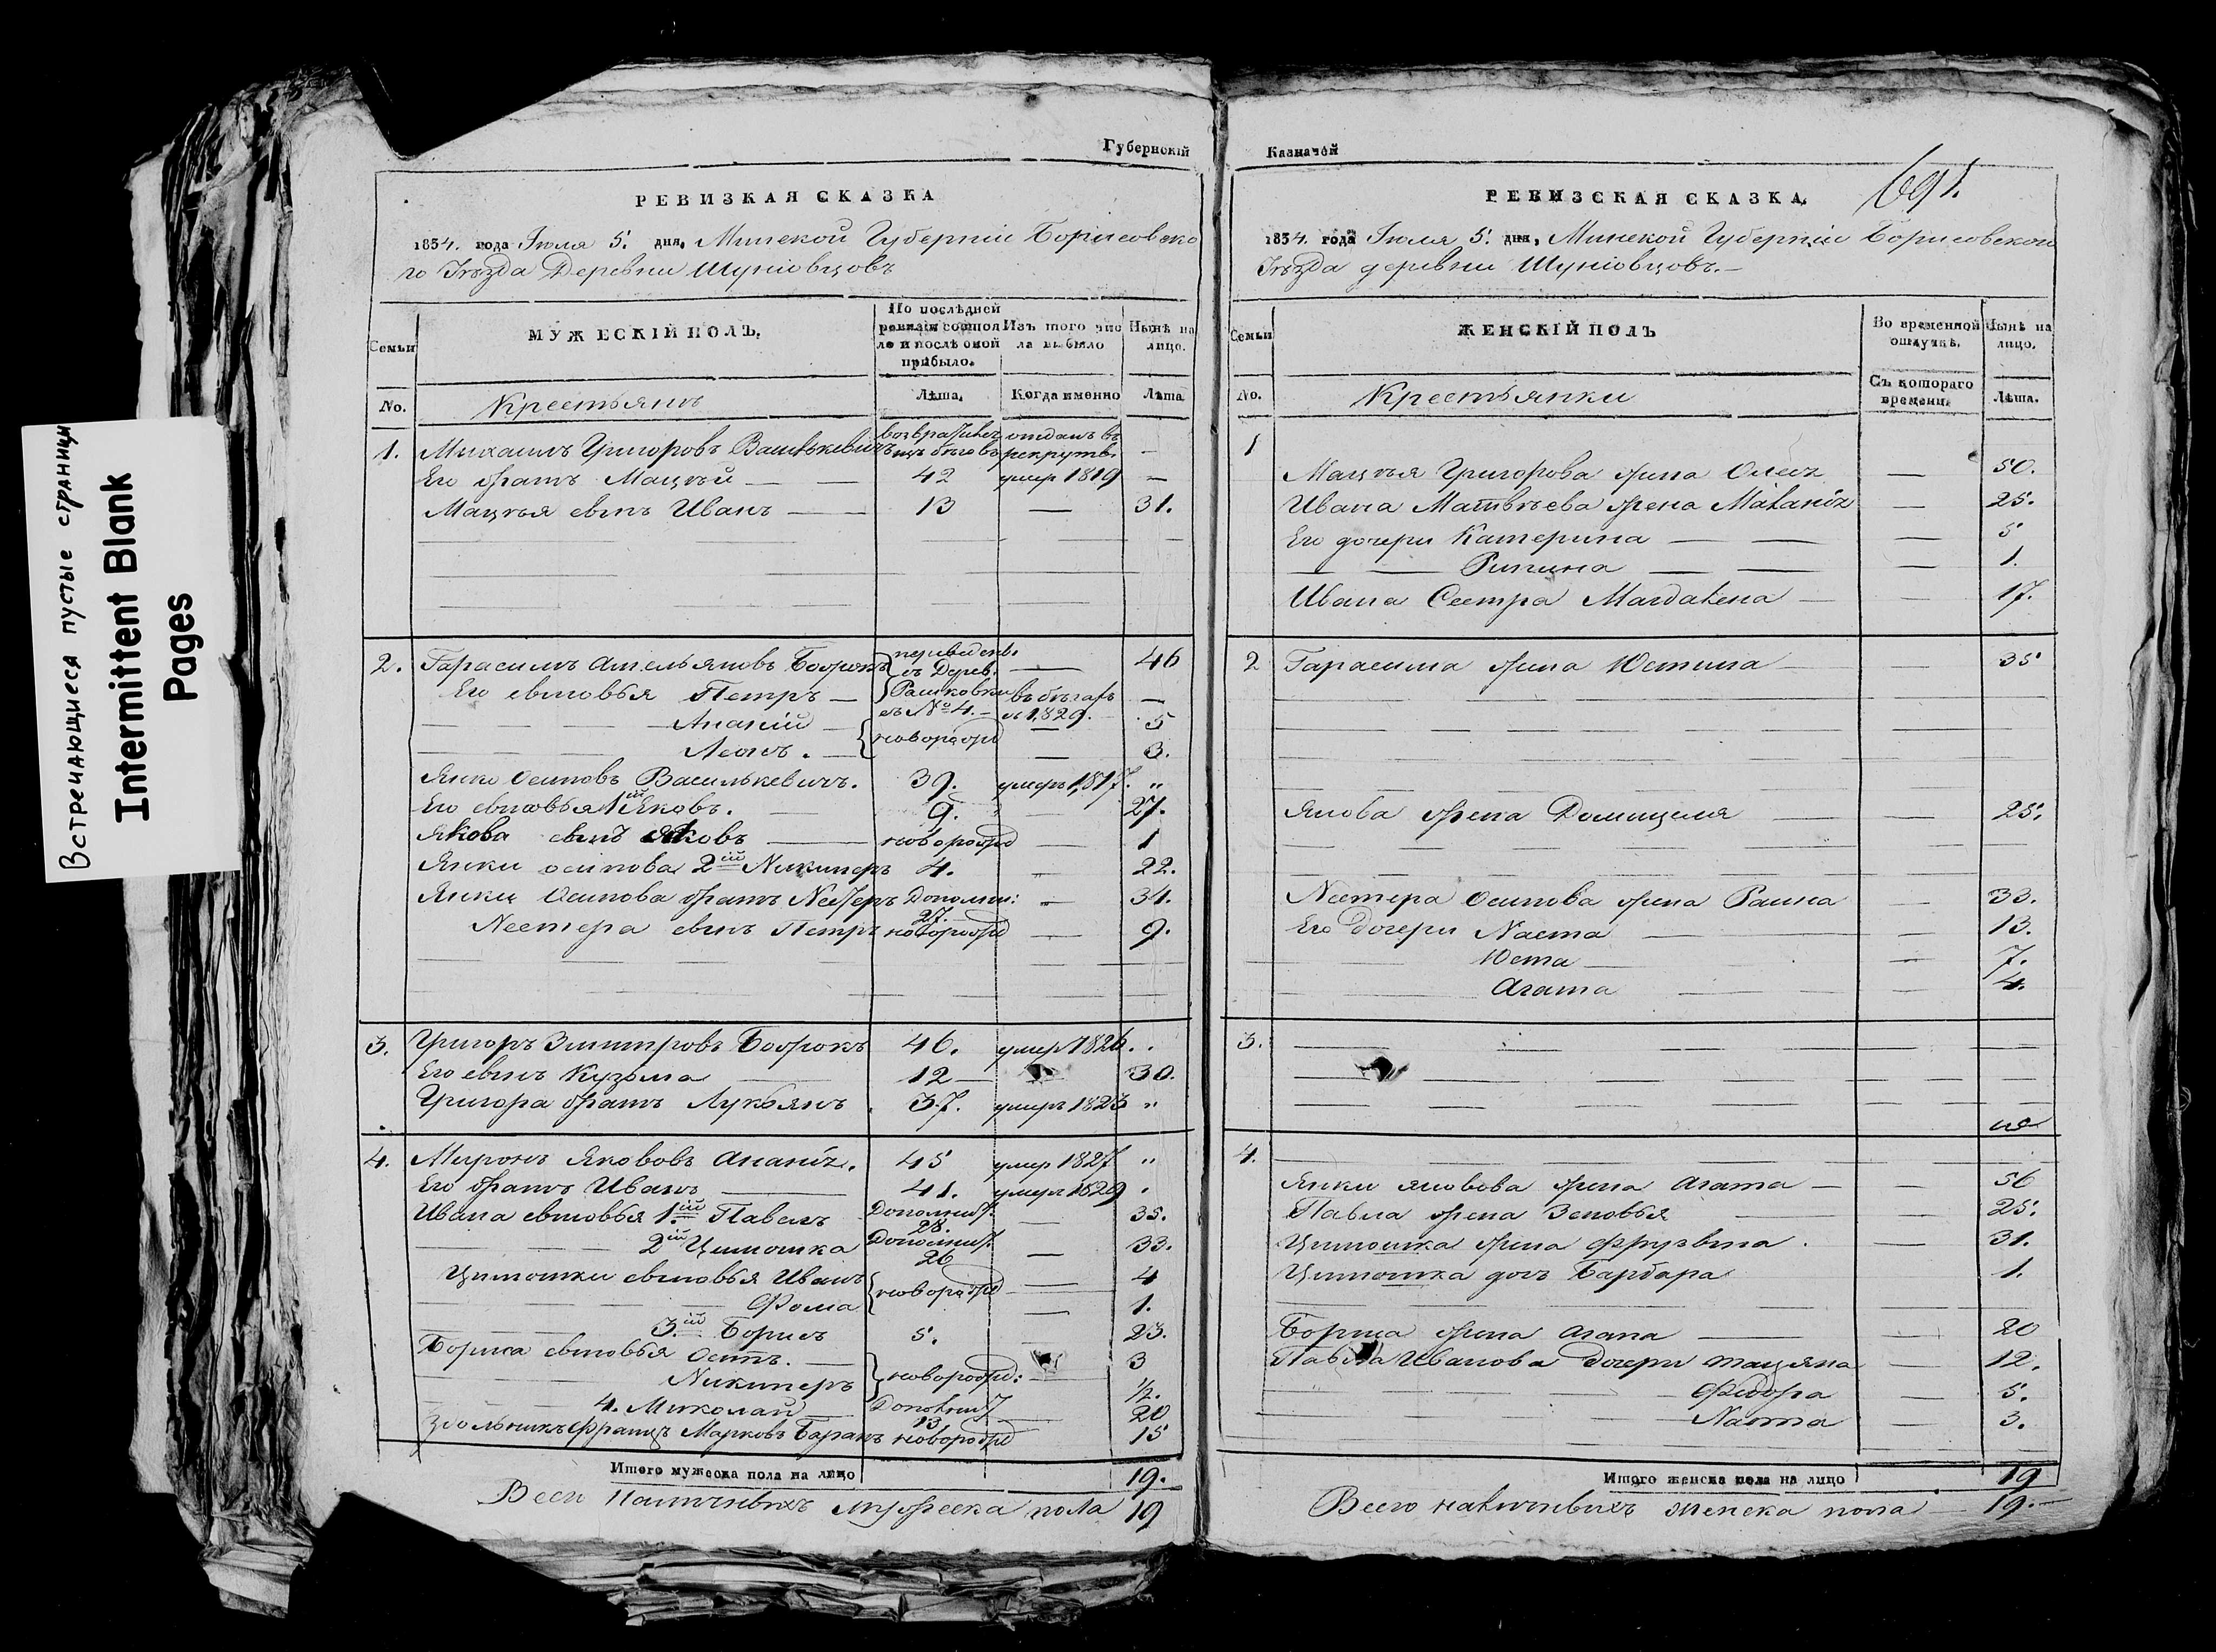 Встречающиеся пустые страницы
Intermittent Blank
Pages
Губернскій
РЕВИЗКАЯ СКАЗКА
1834. года Іюля 5. дня, Минской Губерніи Борисовско
го Уѣзда Деревни Шуніовцовъ
Семьи
МУЖЕСКІЙ ПОЛЪ.
По послѣдней ревизіи состояло и послѣ оной прибыло.
Изъ того числа выбыло
Нынѣ на лицо.
No.
Крестьянъ
Лѣта.
Когда именно
Лѣта
1. Михаилъ Григоровъ Васильkевичъ возвратився изъ бѣговъ отданъ въ рекруты. —
Его братъ Мацѣй — — 42 умер 1819 —
Мацѣя сынъ Иванъ — — 13 — 31.
2. Гарасимъ Амельяновъ Боброкъ переведенъ съ Дерев. — 46
Его сыновья Петръ — Рашковки въ бѣгахъ —
съ № 4. — съ 1829.
Ананій — новорожд — 5
Леонъ. — — 3.
Янко Осиповъ Василькевичъ. 39. умеръ 1817. „
Его сыновья 1ій Яковъ. 9. 27.
Якова сынъ Яковъ — новорожд — 1
Янки осипова 2ій Никиперъ 4. — 22.
Янки Осипова братъ Нестеръ Дополни: 27. — 34.
Нестера сынъ Петръ новорожд — 9.
3. Григоръ Змитровъ Боброкъ 46. умер 1826. .
Его сынъ Кузьма — 12 — 30.
Григора братъ Лукьянъ. 37. умеръ 1823 „
4. Миронъ Яковов Ананіч. 45 умер 1827 „
Его братъ Иванъ — 41. умеръ 1829 .
Ивана сыновья 1.ій Павелъ Дополнит. 28. — 35.
2ій Цимошка Дополнит. 26 — 33.
Цимошки сыновья Иванъ новорожд — 4
Фома — 1.
3.ій Борисъ 5. — 23.
Бориса сыновья Осипъ. — новорожд: — 3
Никиперъ ½.
4. Миколай Дополнит 13 — 20
Здольникъ Францъ Марковъ Баранъ новорожд 15
Итого мужеска пола на лицо 19.
Всего Наличныхъ мужеска пола 19
Казначей
691.
РЕВИЗСКАЯ СКАЗКА.
1834. года Іюля 5. дня, Минской Губерніи Борисовскаго
Уѣзда деревни Шуніовцовъ. —
Семьи
ЖЕНСКІЙ ПОЛЪ
Во временной отлучкѣ.
Нынѣ на лицо.
No.
Крестьянки
Съ котораго времени.
Лѣта.
1
Мацѣя Григорова жена Олеся — 50.
Ивана Матвѣева жена Маланія — 25.
Его дочери Катерина — — — 5
— — Рипина — — — 1.
Ивана Сестра Магдалена — — 17.
2 Гарасима жена Юстина — — 35
Якова жена Домицеля — — 25.
Нестера Осипова жена Раина — 33.
Его Дочери Наста — — 13.
Юста — — 7.
Агата — — 4.
3.
4.
Янки яковова жена Агата — — 56
Павла жена Зеновья — — 25.
Цимошка жена Фрузына. — 31.
Цимошка доч Барбара — 1.
Бориса жена Агапа — — 20
Павла Иванова Дочери Тацяна — 12.
Федора — 5.
Наста — 3.
Итого женска пола на лицо 19
Всего наличныхъ женска пола — 19. —